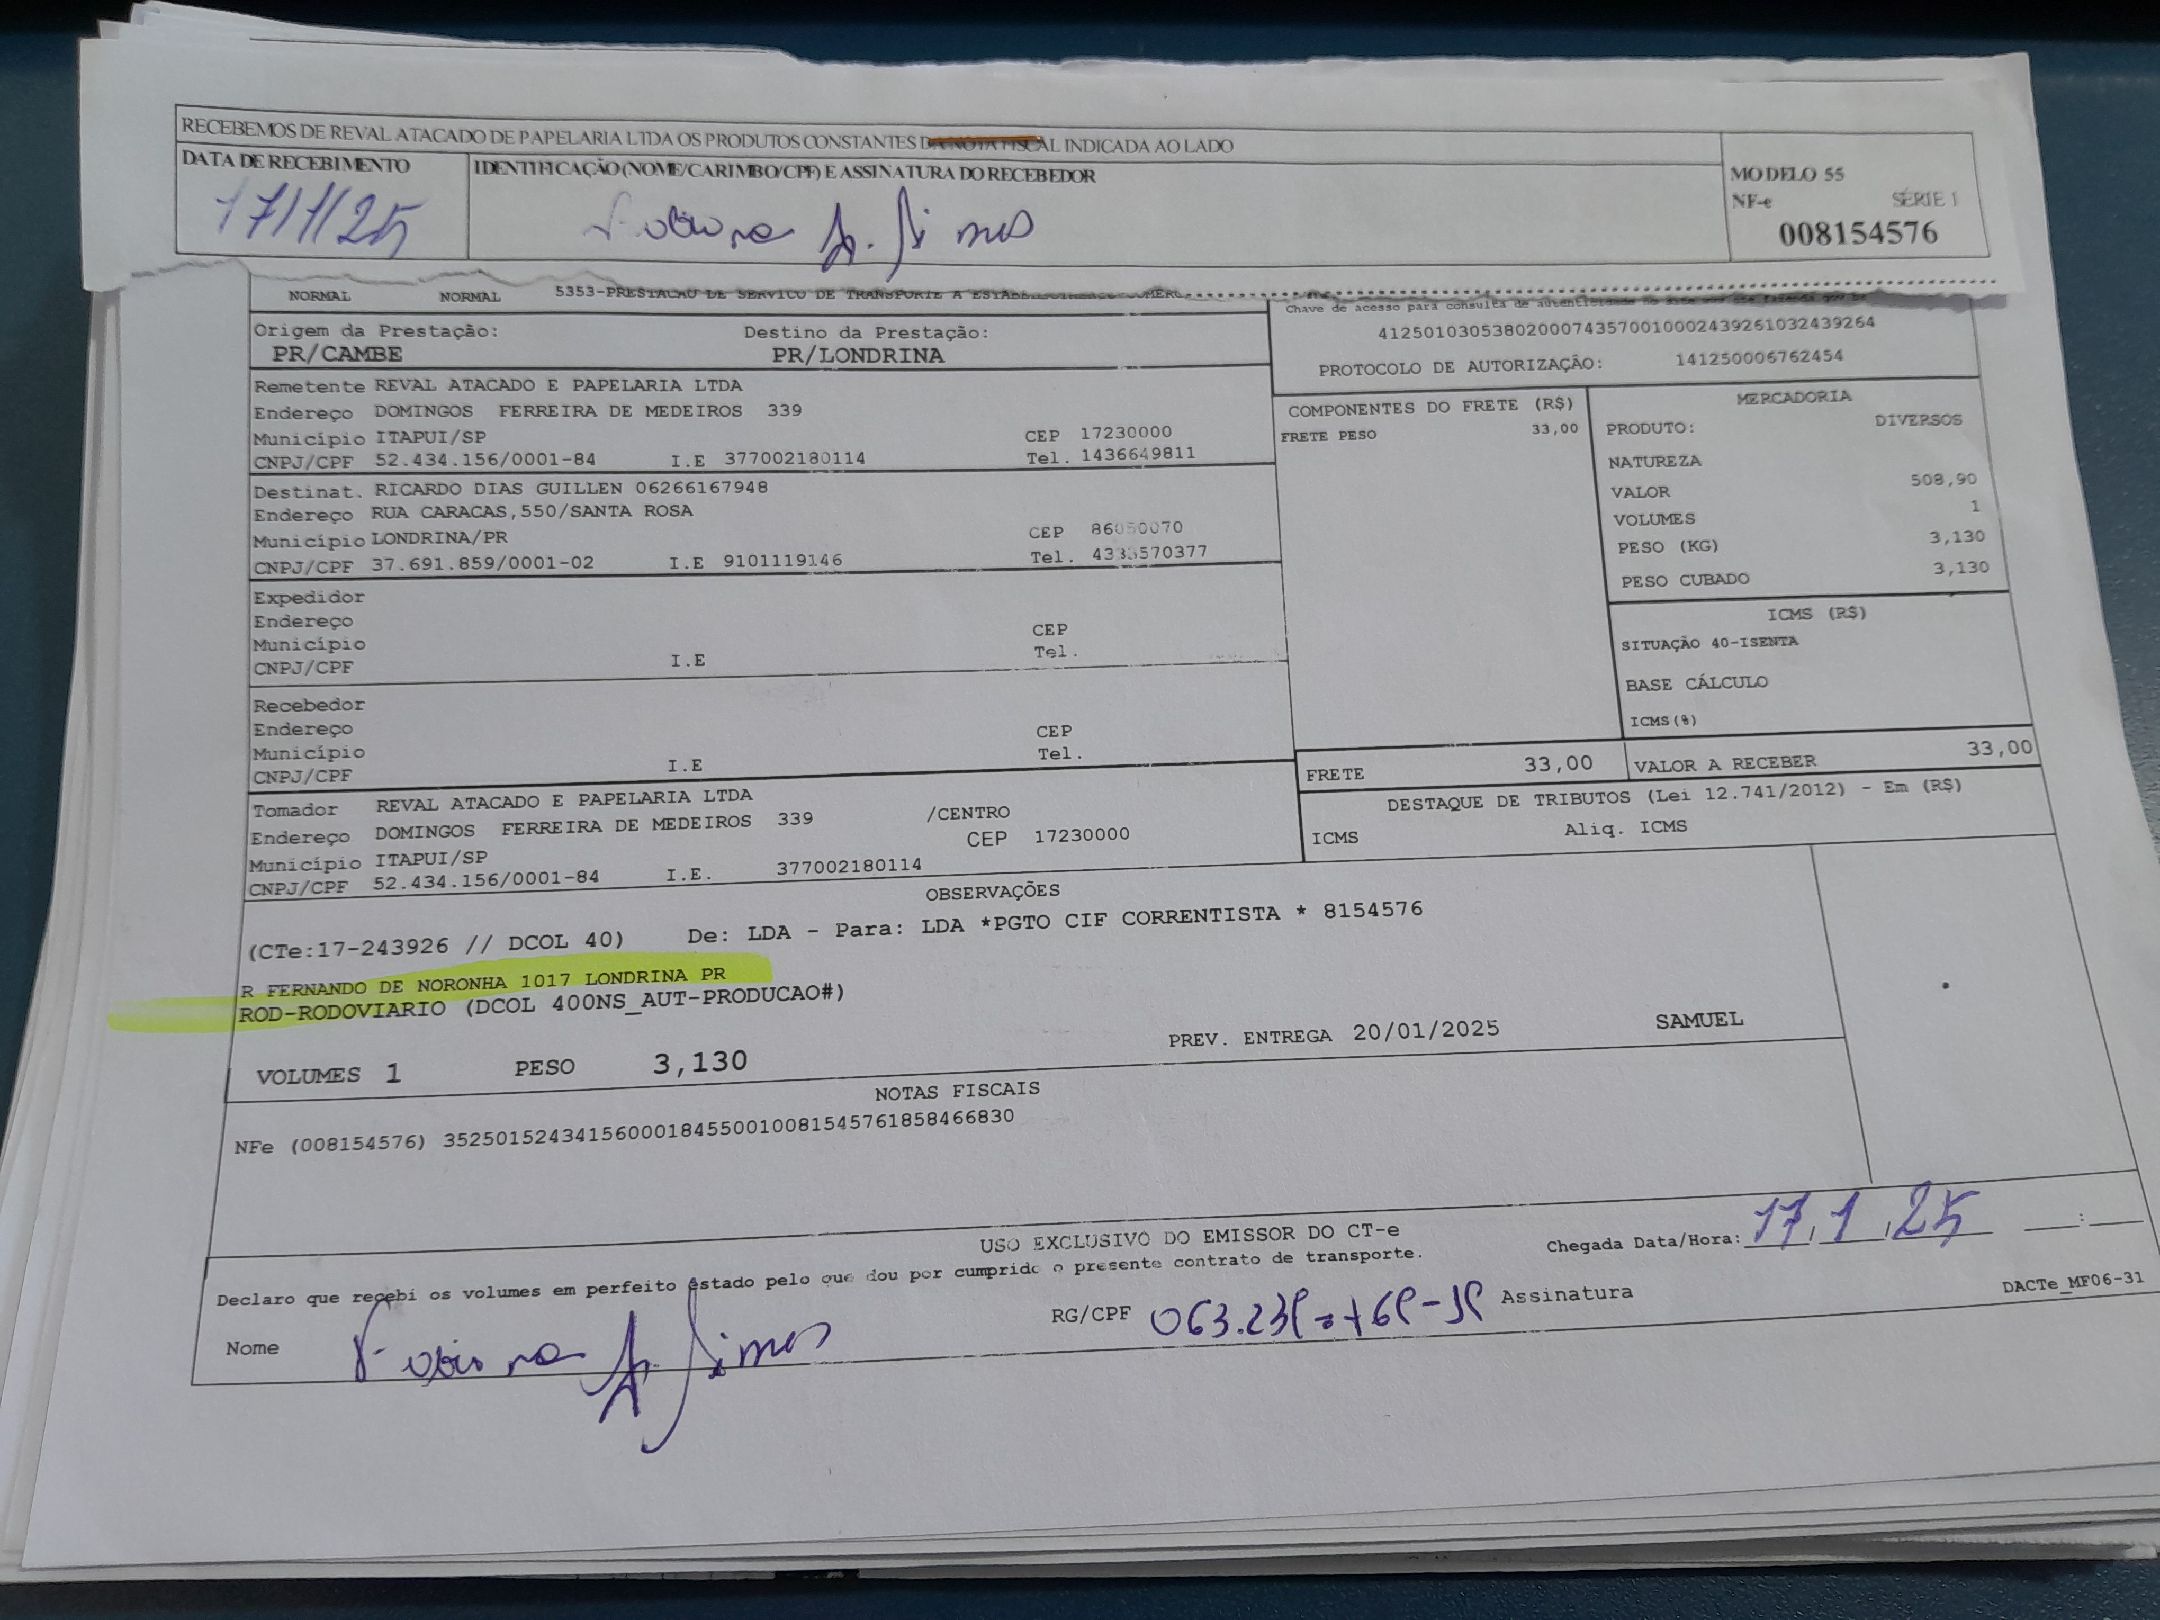 RECEBEMOS DE REVAL ATACADO DE PAPELARIA LTDA OS PRODUTOS CONSTANTES DA NOTA FISCAL INDICADA AO LADO
DATA DE RECEBIMENTO
17/1/25
IDENTIFICAÇÃO (NOME/CARIMBO/CPF) E ASSINATURA DO RECEBEDOR
MODELO 55
NF-e SÉRIE 1
008154576
NORMAL NORMAL 5353-PRESTACAO DE SERVICO DE TRANSPORTE A
Chave de acesso para consulta de autenticidade no site
41250103053802000743570010002439261032439264
PROTOCOLO DE AUTORIZAÇÃO: 141250006762454
Origem da Prestação: Destino da Prestação:
PR/CAMBE PR/LONDRINA
Remetente REVAL ATACADO E PAPELARIA LTDA
Endereço DOMINGOS FERREIRA DE MEDEIROS 339
Município ITAPUI/SP CEP 17230000
CNPJ/CPF 52.434.156/0001-84 I.E 377002180114 Tel. 1436649811
Destinat. RICARDO DIAS GUILLEN 06266167948
Endereço RUA CARACAS,550/SANTA ROSA
Município LONDRINA/PR CEP 86050070
CNPJ/CPF 37.691.859/0001-02 I.E 9101119146 Tel. 4333570377
Expedidor
Endereço
Município CEP
CNPJ/CPF I.E Tel.
Recebedor
Endereço
Município CEP
CNPJ/CPF I.E Tel.
Tomador REVAL ATACADO E PAPELARIA LTDA
Endereço DOMINGOS FERREIRA DE MEDEIROS 339 /CENTRO
Município ITAPUI/SP CEP 17230000
CNPJ/CPF 52.434.156/0001-84 I.E. 377002180114
COMPONENTES DO FRETE (R$)
FRETE PESO 33,00
MERCADORIA
PRODUTO: DIVERSOS
NATUREZA
VALOR 508,90
VOLUMES 1
PESO (KG) 3,130
PESO CUBADO 3,130
ICMS (R$)
SITUAÇÃO 40-ISENTA
BASE CÁLCULO
ICMS(%)
FRETE 33,00 VALOR A RECEBER 33,00
DESTAQUE DE TRIBUTOS (Lei 12.741/2012) - Em (R$)
ICMS Aliq. ICMS
OBSERVAÇÕES
(CTe:17-243926 // DCOL 40) De: LDA - Para: LDA *PGTO CIF CORRENTISTA * 8154576
R FERNANDO DE NORONHA 1017 LONDRINA PR
ROD-RODOVIARIO (DCOL 400NS_AUT-PRODUCAO#)
VOLUMES 1 PESO 3,130 PREV. ENTREGA 20/01/2025 SAMUEL
NOTAS FISCAIS
NFe (008154576) 35250152434156000184550010081545761858466830
USO EXCLUSIVO DO EMISSOR DO CT-e
Declaro que recebi os volumes em perfeito estado pelo que dou por cumprido o presente contrato de transporte.
Chegada Data/Hora: 17,1,25 :
Nome RG/CPF Assinatura
DACTe_MF06-31